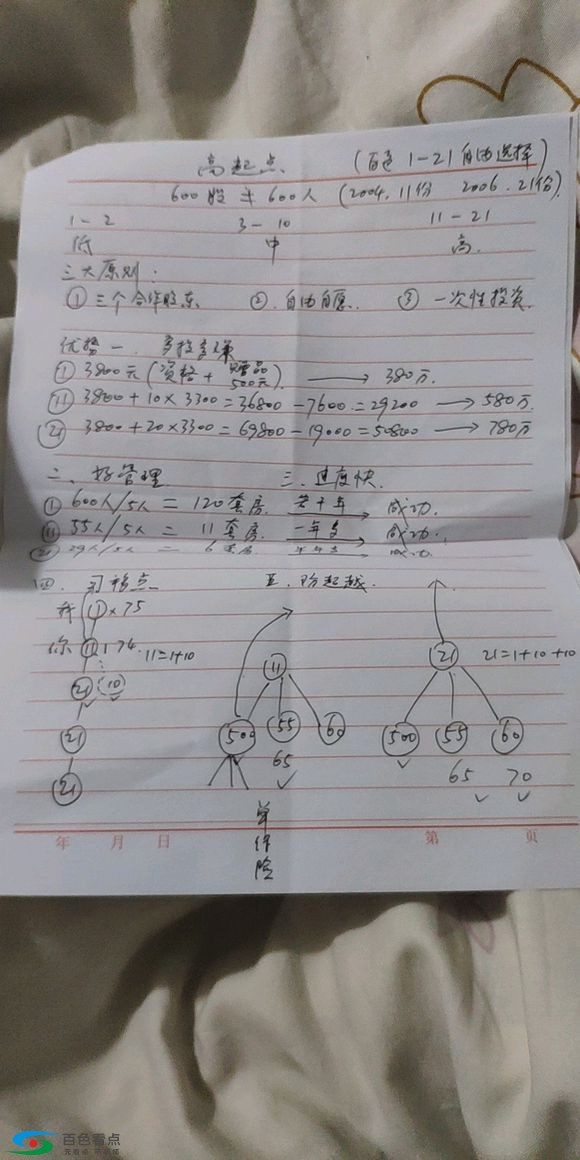 高起点 (百色 1-21 自由选择)
600股≠600人 (2004.11份 2006.21份)
1-2 3-10 11-21
低 中 高.
三大原则.
① 三个合作股东 ② 自由自愿. ③ 一次性投资
优势一. 多投多赚
① 3800元(资格+赠品500元) → 380万.
⑪ 3800+10×3300=36800-7600=29200 → 580万.
㉑ 3800+20×3300=69800-19000=50800 → 780万
二、好管理 三.速度快.
① 600人/5人 = 120套房. 若干年 → 成功.
⑪ 55人/5人 = 11套房. 一年多 → 成功.
㉑ 29人/5人 = 6套房. 半年多 → 成功.
四. 点 五. 防超越.
我 ①×75
你 ⑪ 74. 11=1+10
㉑ (10)
㉑
㉑
⑪
500 55 60
65
单
保
险
㉑ 21=1+10+10
500 55 60
65 70
年 月 日 第 页
百色看点